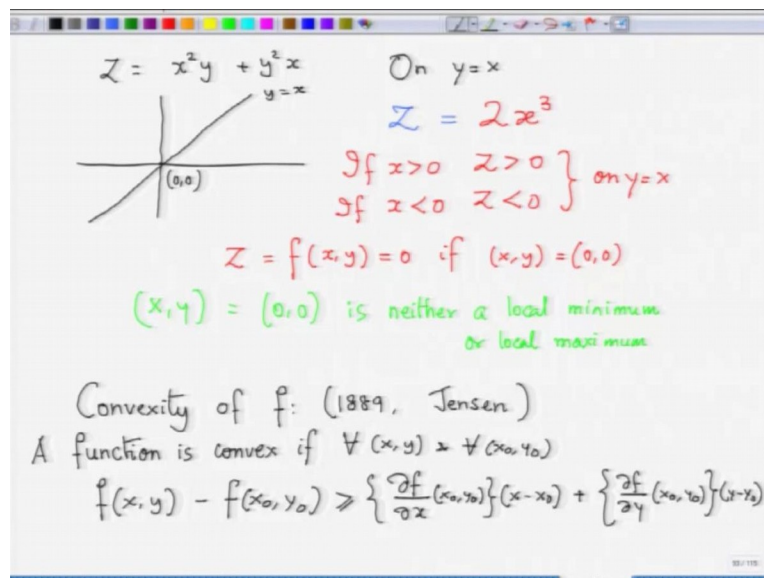 Z = x²y + y²x On y=x
y=x
Z = 2x³
(0,0)
If x>0 Z>0
If x<0 Z<0 } on y=x
Z = f(x,y) = 0 if (x,y) = (0,0)
(x,y) = (0,0) is neither a local minimum
or local maximum
Convexity of f: (1889, Jensen)
A function is convex if ∀ (x,y) & ∀ (x₀,y₀)
f(x,y) - f(x₀,y₀) ≥ {∂f/∂x (x₀,y₀)}(x-x₀) + {∂f/∂y (x₀,y₀)}(y-y₀)